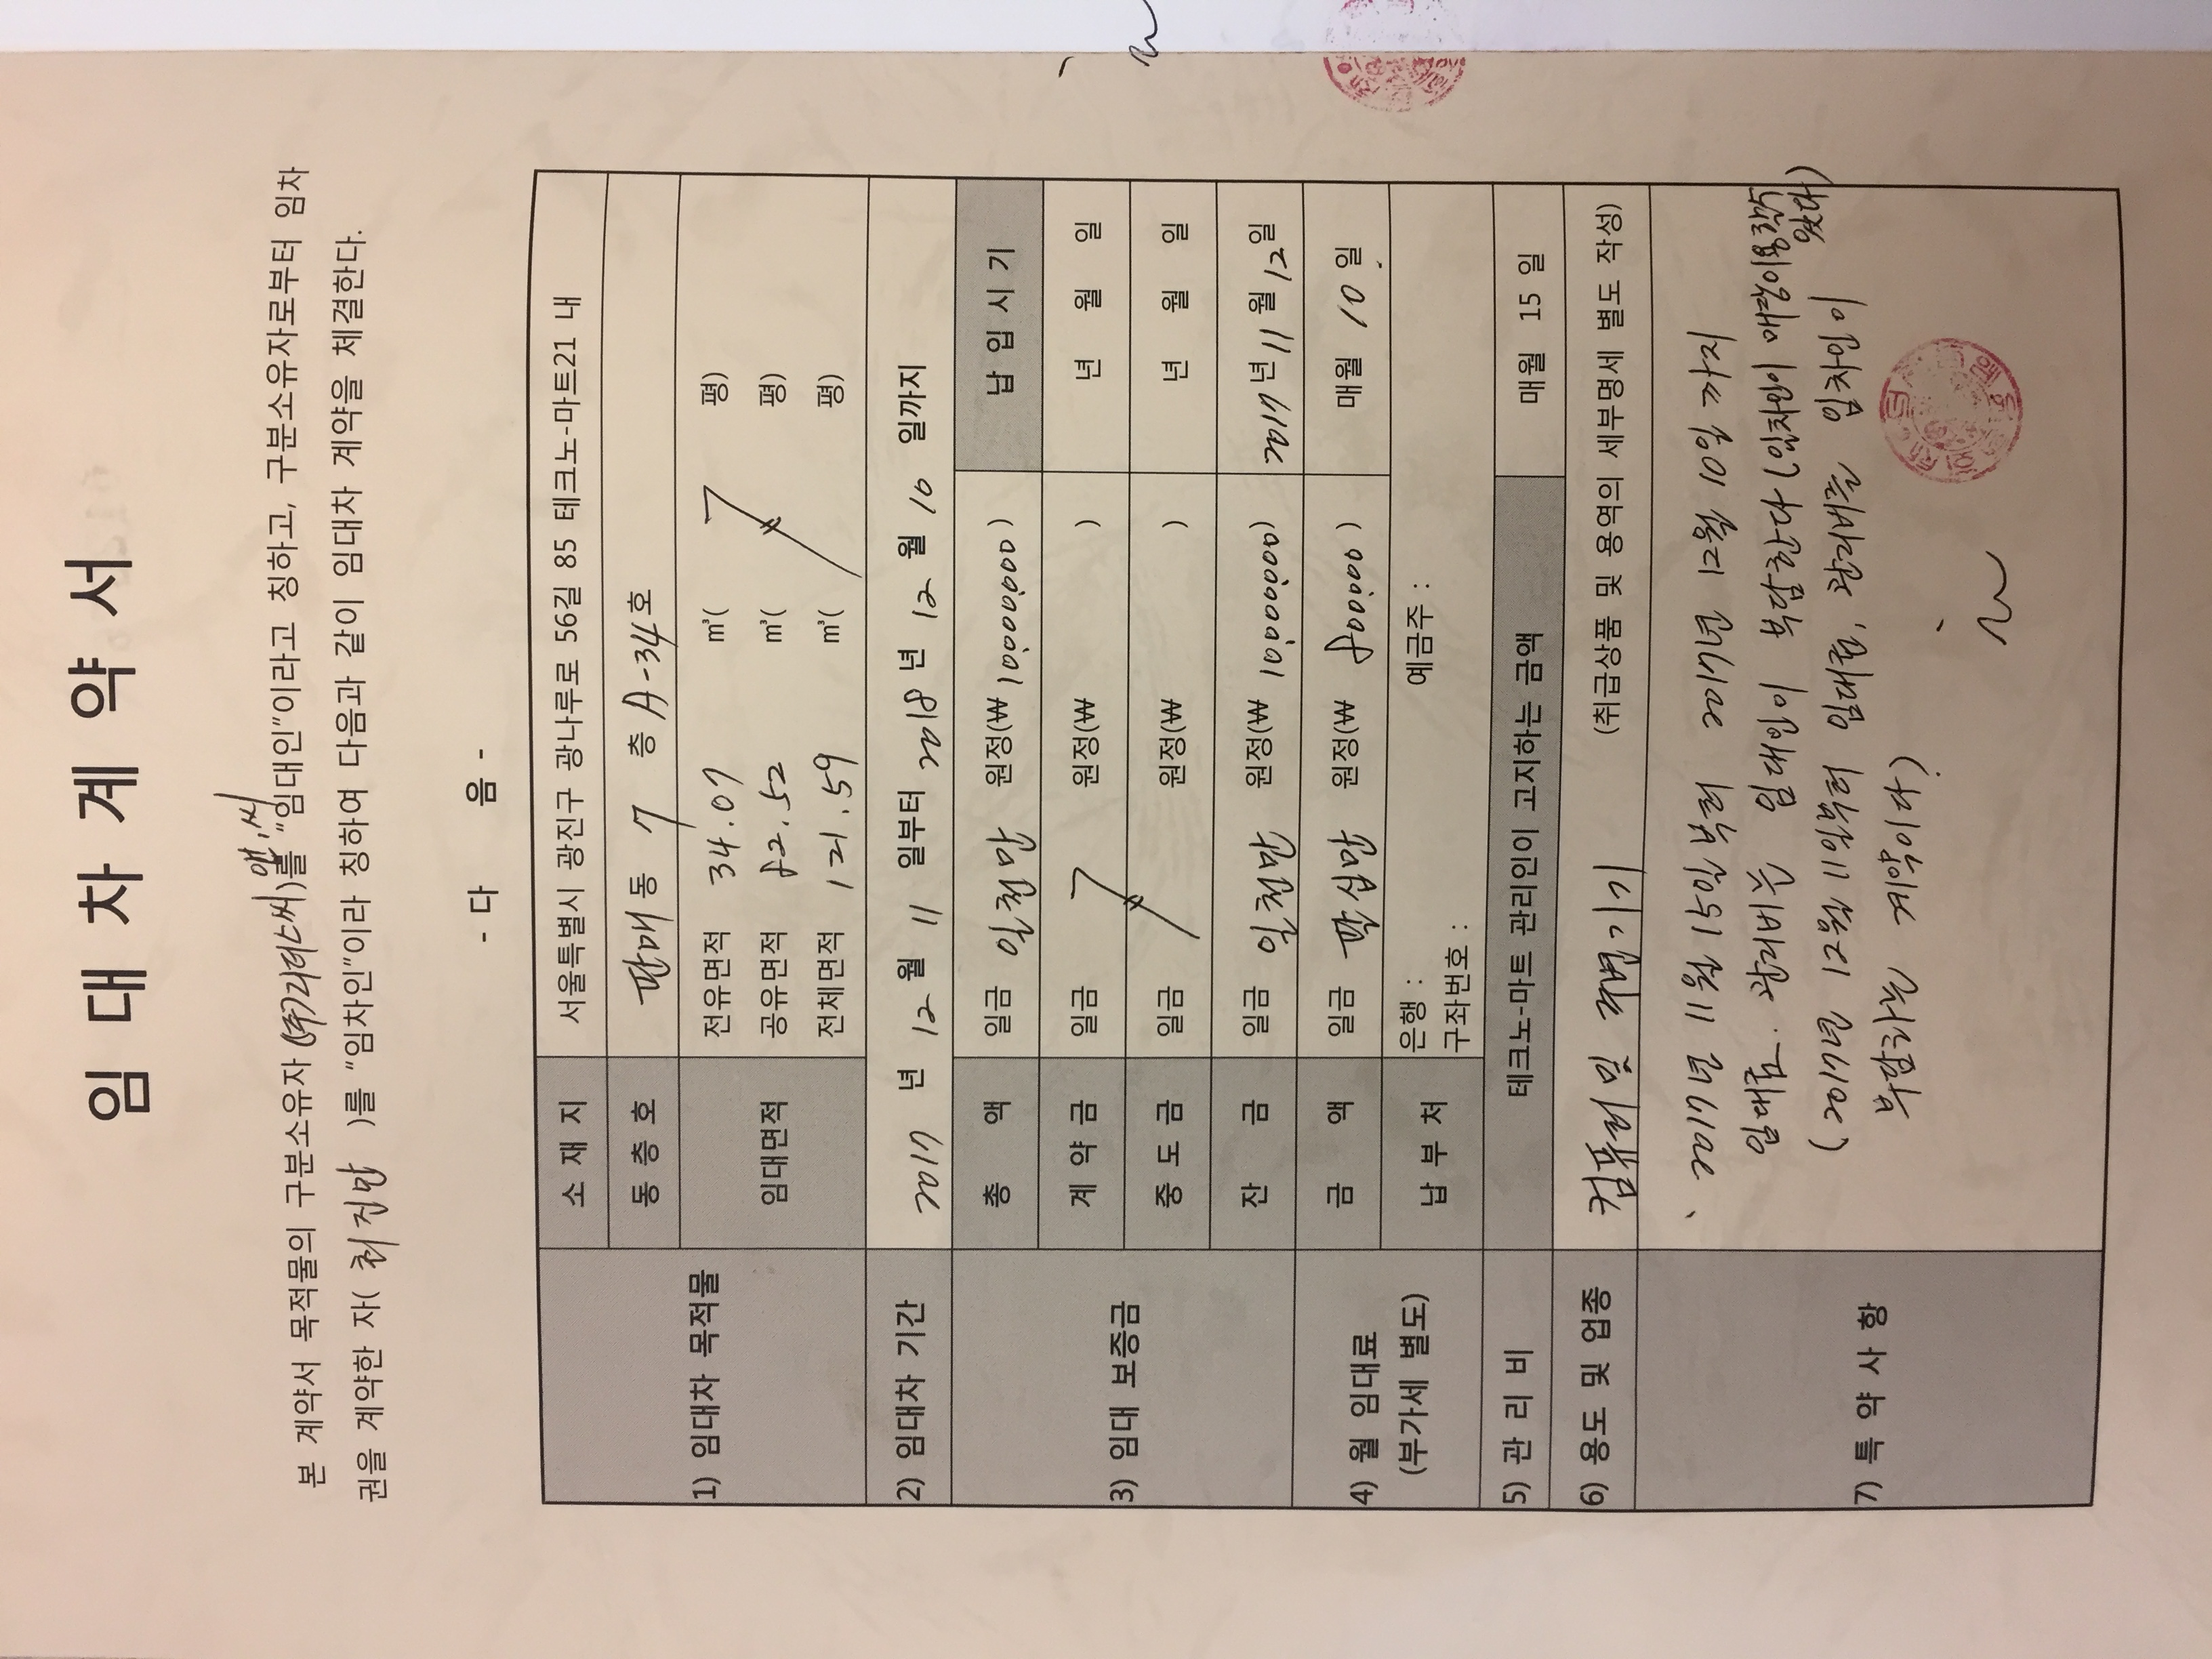 임 대 차 계 약 서
본 계약서 목적물의 구분소유자 ( )를 "임대인"이라고 칭하고, 구분소유자로부터 임차
권을 계약한 자( )를 "임차인"이라 칭하여 다음과 같이 임대차 계약을 체결한다.
- 다 음 -
1) 임대차 목적물
소 재 지 서울특별시 광진구 광나루로 56길 85 테크노-마트21 내
동 층 호 판매 동 7 층 A-34호
임대면적 전유면적 34.07 ㎥( 평)
공유면적 82.52 ㎥( 평)
전체면적 121.59 ㎥( 평)
2) 임대차 기간 2017 년 12 월 11 일부터 2018 년 12 월 10 일까지
3) 임대 보증금 납 입 시 기
총 액 일금 일천만 원정(₩ 10,000,000 )
계 약 금 일금 원정(₩ ) 년 월 일
중 도 금 일금 원정(₩ ) 년 월 일
잔 금 일금 일천만 원정(₩ 10,000,000) 2017 년 11 월 12일
4) 월 임대료
(부가세 별도)
금 액 일금 팔십만 원정(₩ 800,000 ) 매월 10 일
납 부 처 은행 : 예금주 :
구좌번호 :
5) 관 리 비 테크노-마트 관리인이 고지하는 금액 매월 15 일
6) 용도 및 업종 컴퓨터 및 주변기기 (취급상품 및 용역의 세부명세 별도 작성)
7) 특 약 사 항
2017년 11월 15일부터 2017년 12월 10일 까지
임대료. 관리비는 임대인이 부담한다 (임차인이
(2017년 12월 11일부터 임대료, 관리비를 임차인이
부담하는 계약이다.)